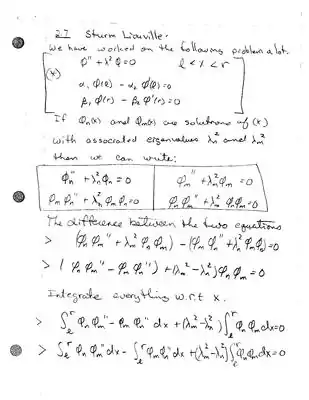 2.7 Sturm Liouville.
We have worked on the following problem a lot.
(*) φ'' + λ²φ = 0    l < x < r
α₁ φ(l) - α₂ φ'(l) = 0
β₁ φ(r) - β₂ φ'(r) = 0
If φn(x) and φm(x) are solutions of (*)
with associated eigenvalues λn² and λm²
then we can write:
φn'' + λn² φn = 0    φm'' + λm² φm = 0
φm φn'' + λn² φm φn = 0    φn φm'' + λm² φn φm = 0
The difference between the two equations
> (φn φm'' + λm² φn φm) - (φm φn'' + λn² φm φn) = 0
> (φn φm'' - φm φn'') + (λm² - λn²) φn φm = 0
Integrate everything w.r.t x.
> ∫lr φn φm'' - φm φn'' dx + (λm² - λn²) ∫lr φn φm dx = 0
> ∫lr φn φm'' dx - ∫lr φm φn'' dx + (λm² - λn²) ∫lr φn φm dx = 0